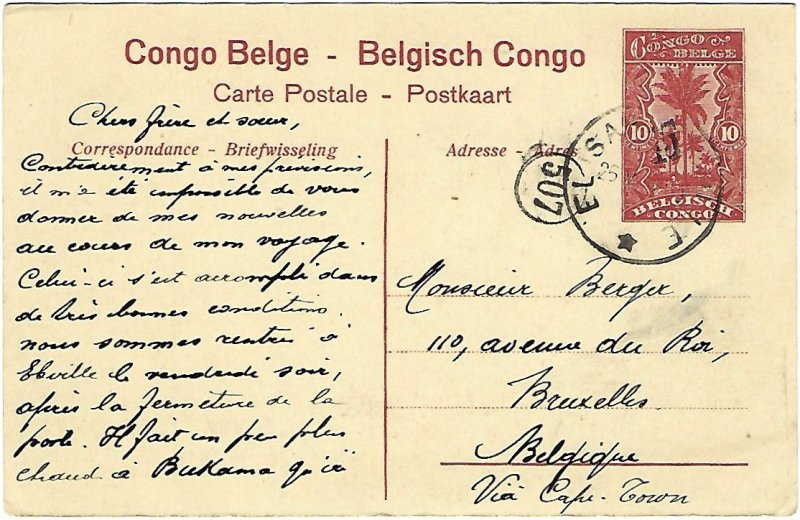 Congo Belge - Belgisch Congo
Carte Postale - Postkaart
CONGO BELGE
10 10
BELGISCH CONGO
Correspondance - Briefwisseling
Adresse - Adres
507
Chers frère et soeur,
Contrairement à mes prévisions,
il m'a été impossible de vous
donner de mes nouvelles
au cours de mon voyage.
Celui-ci s'est accompli dans
de très bonnes conditions.
nous sommes rentrés à
Eville le vendredi soir,
après la fermeture de la
poste. Il fait un peu plus
chaud à Bukama qu'ici
Monsieur Berger,
110, avenue du Roi,
Bruxelles.
Belgique
Viâ Cape-Town